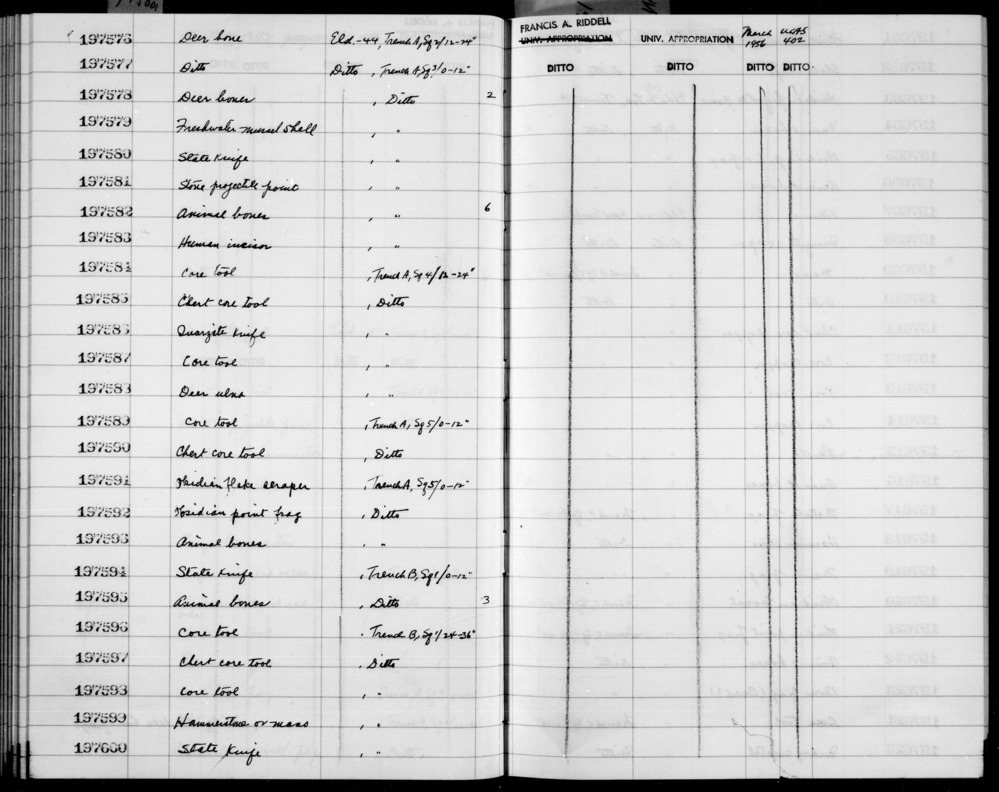 FRANCIS A. RIDDELL
197576 Deer bone Eld.-44, Trench A, Sq 2/12-24" UNIV. APPROPRIATION UNIV. APPROPRIATION March 1956 UCAS 402
197577 Ditto Ditto , Trench A, Sq 3/0-12" DITTO DITTO DITTO DITTO
197578 Deer bones , Ditto 2
197579 Freshwater mussel shell , "
197580 Slate Knife , "
197581 Stone projectile point , "
197582 Animal bones , " 6
197583 Human incisor , "
197584 Core tool , Trench A, Sq 4/12-24"
197585 Chert core tool , Ditto
197586 Quartzite Knife , "
197587 Core tool , "
197588 Deer ulna , "
197589 Core tool , Trench A, Sq 5/0-12"
197590 Chert core tool , Ditto
197591 Obsidian flake scraper , Trench A, Sq 5/0-12"
197592 Obsidian point frag , Ditto
197593 Animal bones , "
197594 Slate Knife , Trench B, Sq 1/0-12"
197595 Animal bones , Ditto 3
197596 Core tool , Trench B, Sq 1/24-36"
197597 Chert core tool , Ditto
197598 Core tool , "
197599 Hammerstone or mano , "
197600 Slate Knife , "